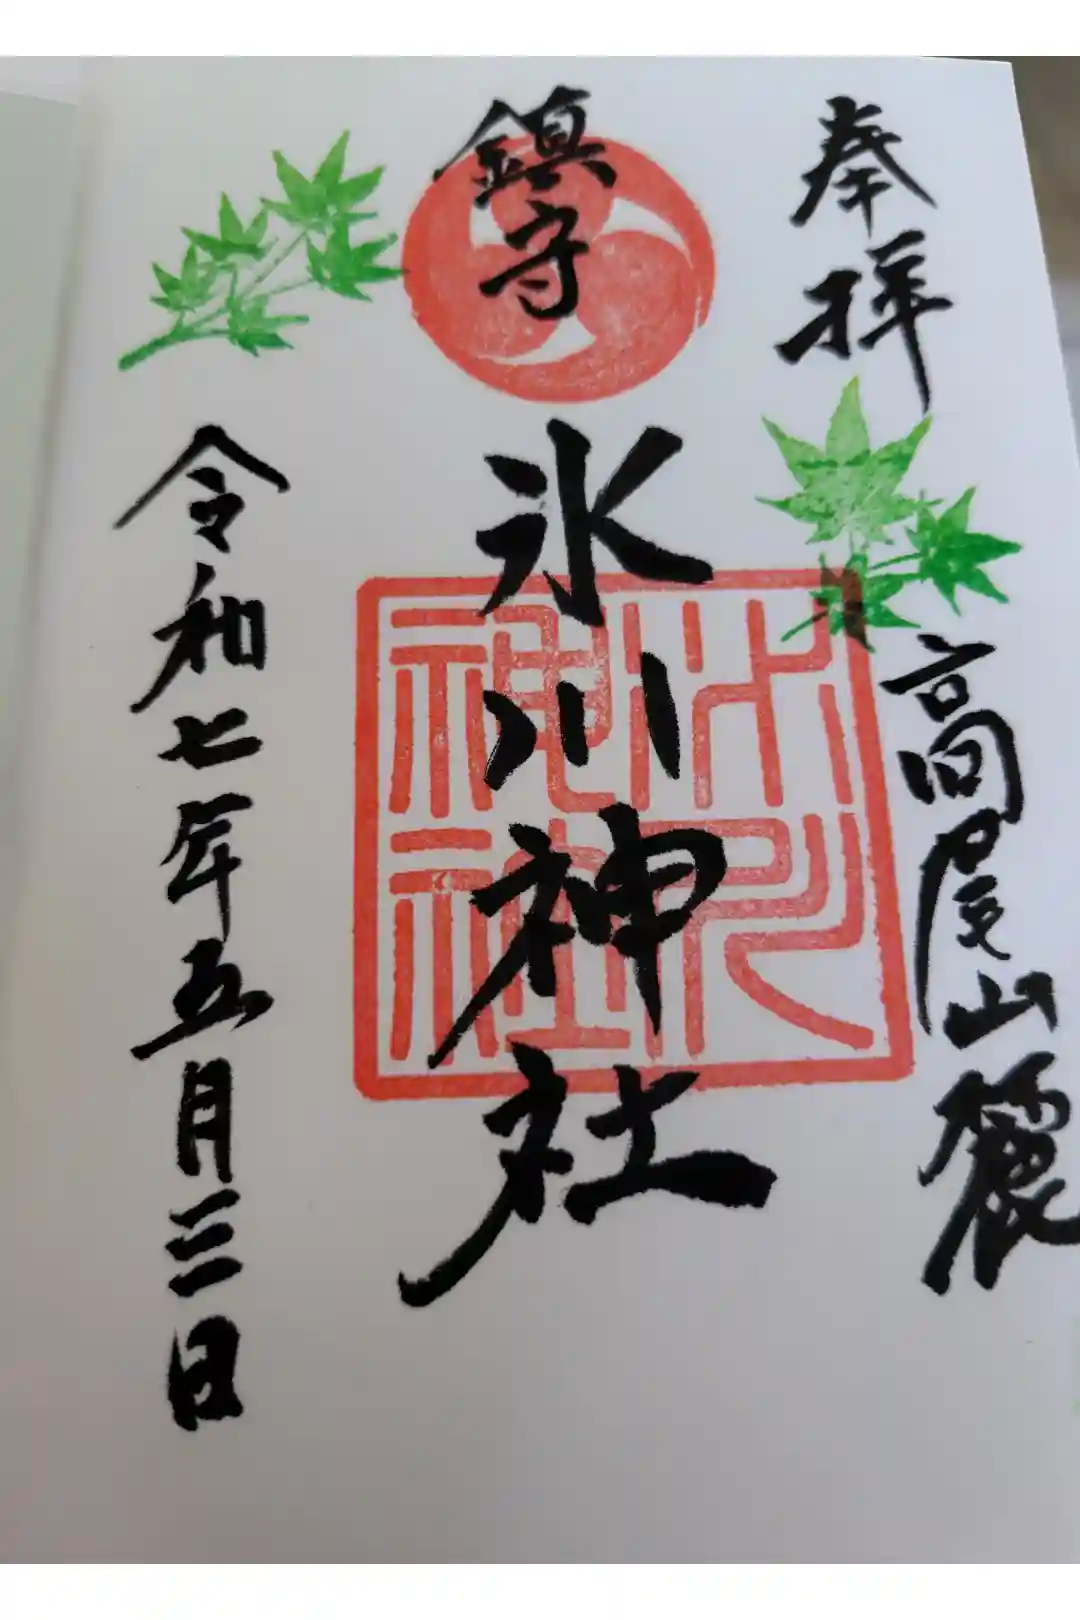 奉拝
高尾山麓
鎮守
氷川神社
氷川神社
令和七年五月三日